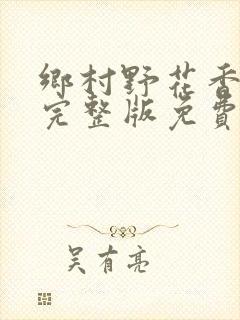 鄉村野花香
完整版免費
吳有亮